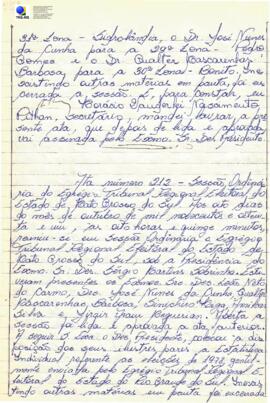 31ª Zona - Sidrolândia, o Dr. José Nunes
da Cunha para a 29ª Zona - Pedro
Gomes e o Dr. Qualter Mascarenhas
Barbosa, para a 30ª Zona - Bonito.
outras matérias em pauta, foi en-
cerrada a Sessão. E, para constar, eu
Horácio Vanderlei Nascimento
Pithan, Secretário, mandei lavrar, a pre-
sente ata, que depois de lida e aprovada
vai assinada pelo Exmo. Sr. Des. Presidente.
Ata número 212 - Sessão Ordiná-
ria do Egrégio Tribunal Regional Eleitoral do
Estado de Mato Grosso do Sul. Aos oito dias
do mês de outubro de mil novecentos e oiten-
ta e um, às oito horas e quinze minutos,
reuniu-se em Sessão Ordinária o Egrégio
Tribunal Regional Eleitoral do Estado de
Mato Grosso do Sul sob a Presidência do
Exmo. Sr. Des. Sérgio Martins Sobrinho. Esti-
veram presentes os Exmos. Srs. Des. Leão Neto
do Carmo, Drs. José Nunes da Cunha, Qualter
Mascarenhas Barbosa,
Silva e
Sessão foi lida e aprovada a ata anterior.
A seguir S. Exa. o Des. Presidente, colocou à dis-
posição dos seus ilustres pares a Estatística
Individual referente às eleições de 1978 gentil-
mente enviada pelo Egrégio Tribunal Regional E-
leitoral do Estado do Rio Grande do Sul. Inexis-
tindo outras matérias em pauta foi encerrada